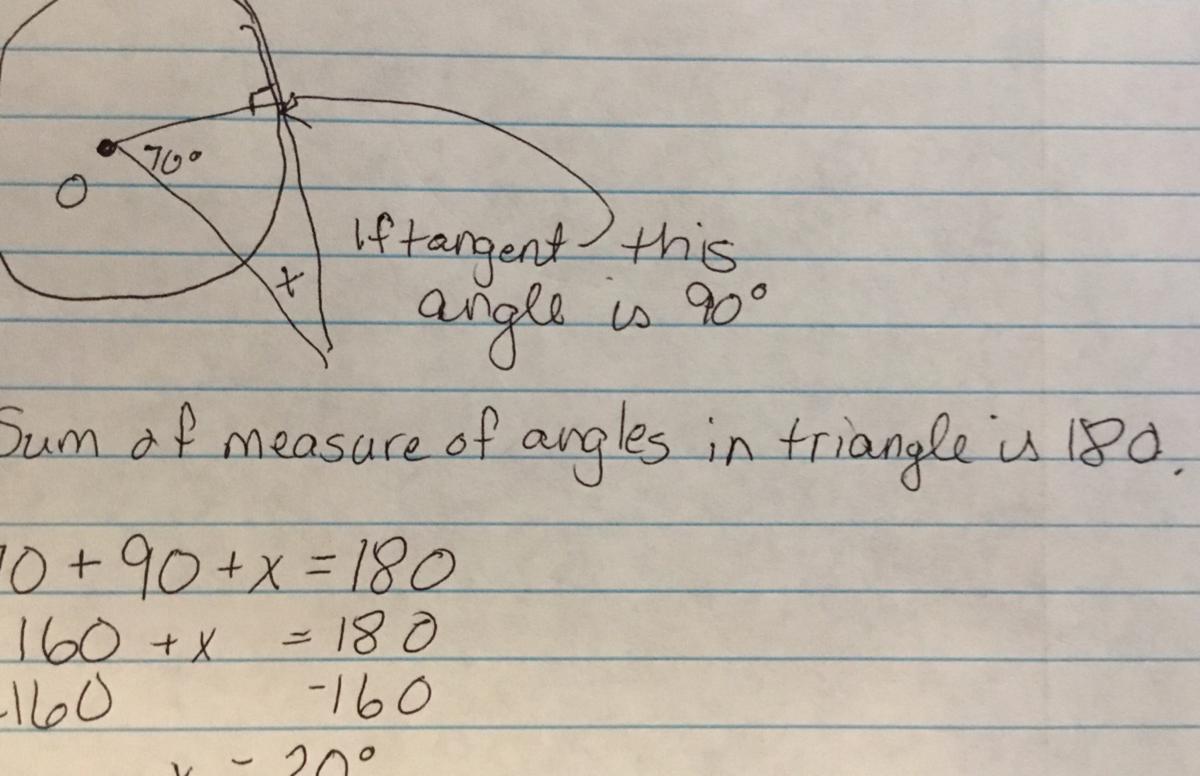 70°
O
If tangent this
x
angle is 90°
Sum of measure of angles in triangle is 180.
70 + 90 + x = 180
160 + x = 180
-160 -160
x = 20°